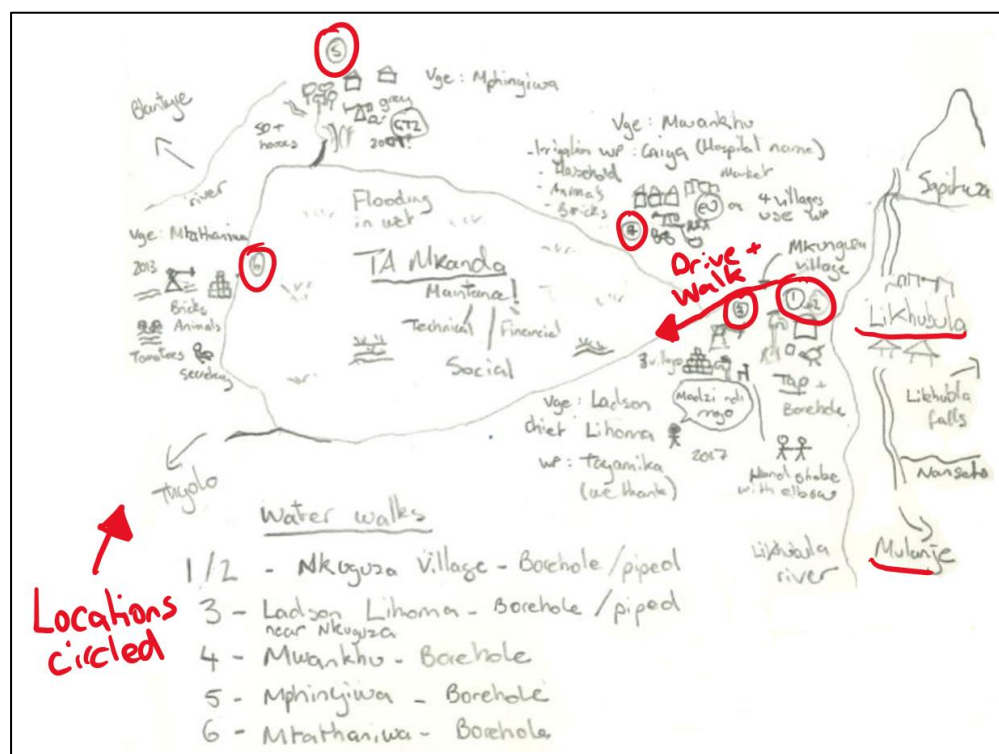 5
Vge: Mphingiwa
Blantyre
50+
houses
grey
GTZ
2009!
river
Vge: Mwankhu
- Irrigation WP: Caiga (Hospital name)
- Household
- Animals
- Bricks
Market
EU
4 villages
use WP
4
Sapitwa
Flooding
in wet
Vge: Mtathaniwa
2013
6
Bricks
Animals
Tomatoes
Secretary
TA Mkanda
Maintance!
Technical / Financial
Social
Drive +
walk
Mkunguza
village
3
1
2
Likhubula
3 village
Tap +
Borehole
Likhubla
falls
Vge: Ladson
chief Lihoma
WP: Tayamika
(we thank)
Madzi ndi
moyo
2017
Hand shake
with elbow
Nanseto
Thyolo
Likhubula
river
Mulanje
Locations
circled
Water walks
1/2 - Nkuguza Village - Borehole/piped
3 - Ladson Lihoma - Borehole/piped
near Nkuguza
4 - Mwankhu - Borehole
5 - Mphingiwa - Borehole
6 - Mtathaniwa - Borehole